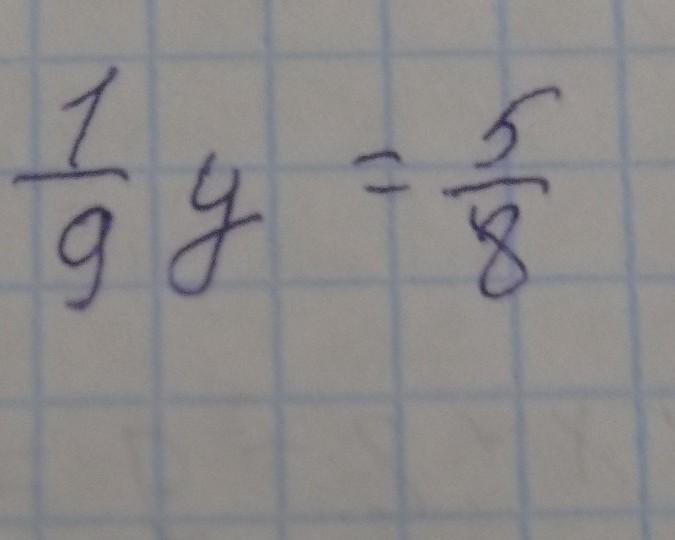 1/9 y = 5/8